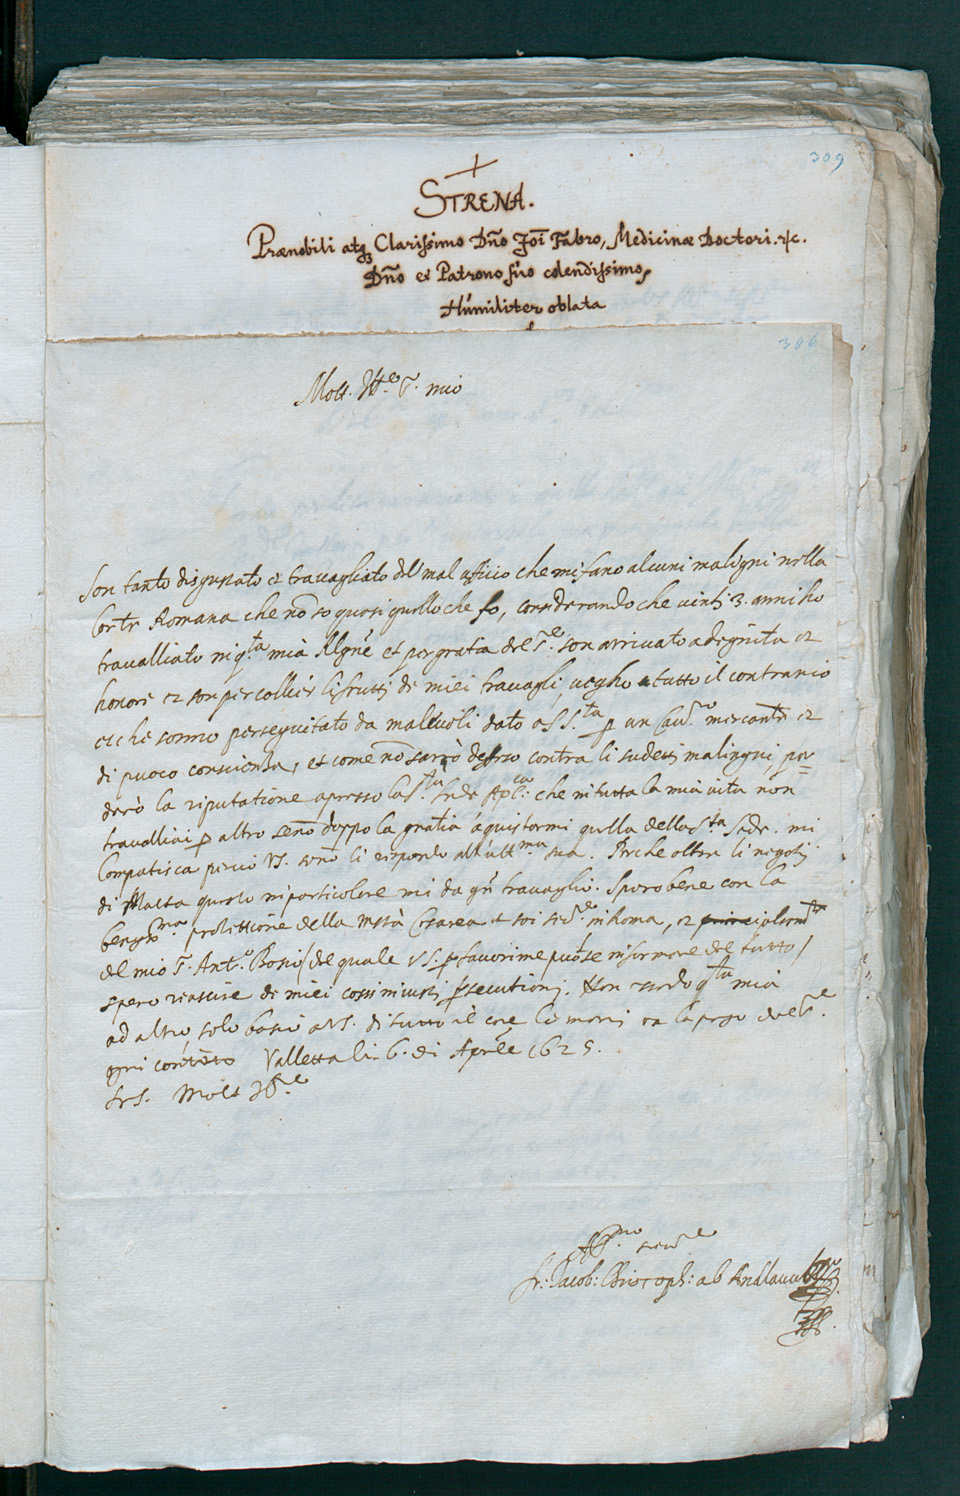 309
STRENA.
Prænobili atq3 Clarissimo Dño Joi Fabro, Medicinæ Doctori. &c.
Dño et Patrono suo colendissimo,
Humiliter oblata
306
Molt. Ill.e S. mio
Son tanto disgustato et travagliato del mal officio che mi fano alcuni maligni nella
Corte Romana che nõ so quasi quello che fo, considerando che vinti 3. anni ho
travalliato in q.ta mia Religne et per gratia del S.e son arrivato a degnita et
honori et son per collier li frutti de miei travagli, vegho a tutto il contrario
et che sonno perseguitato da malevoli dato a S S.ta p un Cav.re mercante et
di puoco conscienza, et come nõ sarrò defeso contra li sudetti malingni, per=
derò la riputatione apresso la S.ta Sede Apl.ca che in tutta la mia vita non
travalliai p altro senõ doppo la gratia aquistarmi quella della S.ta Sede. mi
Compatisca perciò VS. senõ li rispondo all'ult.ma sua. Perche oltra li negotij
di Malta questo in particolare mi da grã travaglio. Spero bene con la
benig.ma protettione della Mstà Cesarea et soi ser.e in Roma, et
del mio S. Ant.o Bosio / del quale V S. p favorirme puotse informare del tutto /
spero reuscire de miei cossi iniusti psecutioni. Non esendo q.ta mia
ad altro, solo bascio a VS. di tutto il core le mani et la prego dal S.e
ogni contento Valletta li 6. di Aprle 1625.
Di VS. Molt Ill.e
Aff.mo ser.e
fr: Jacob: Christoph: ab Andlauw